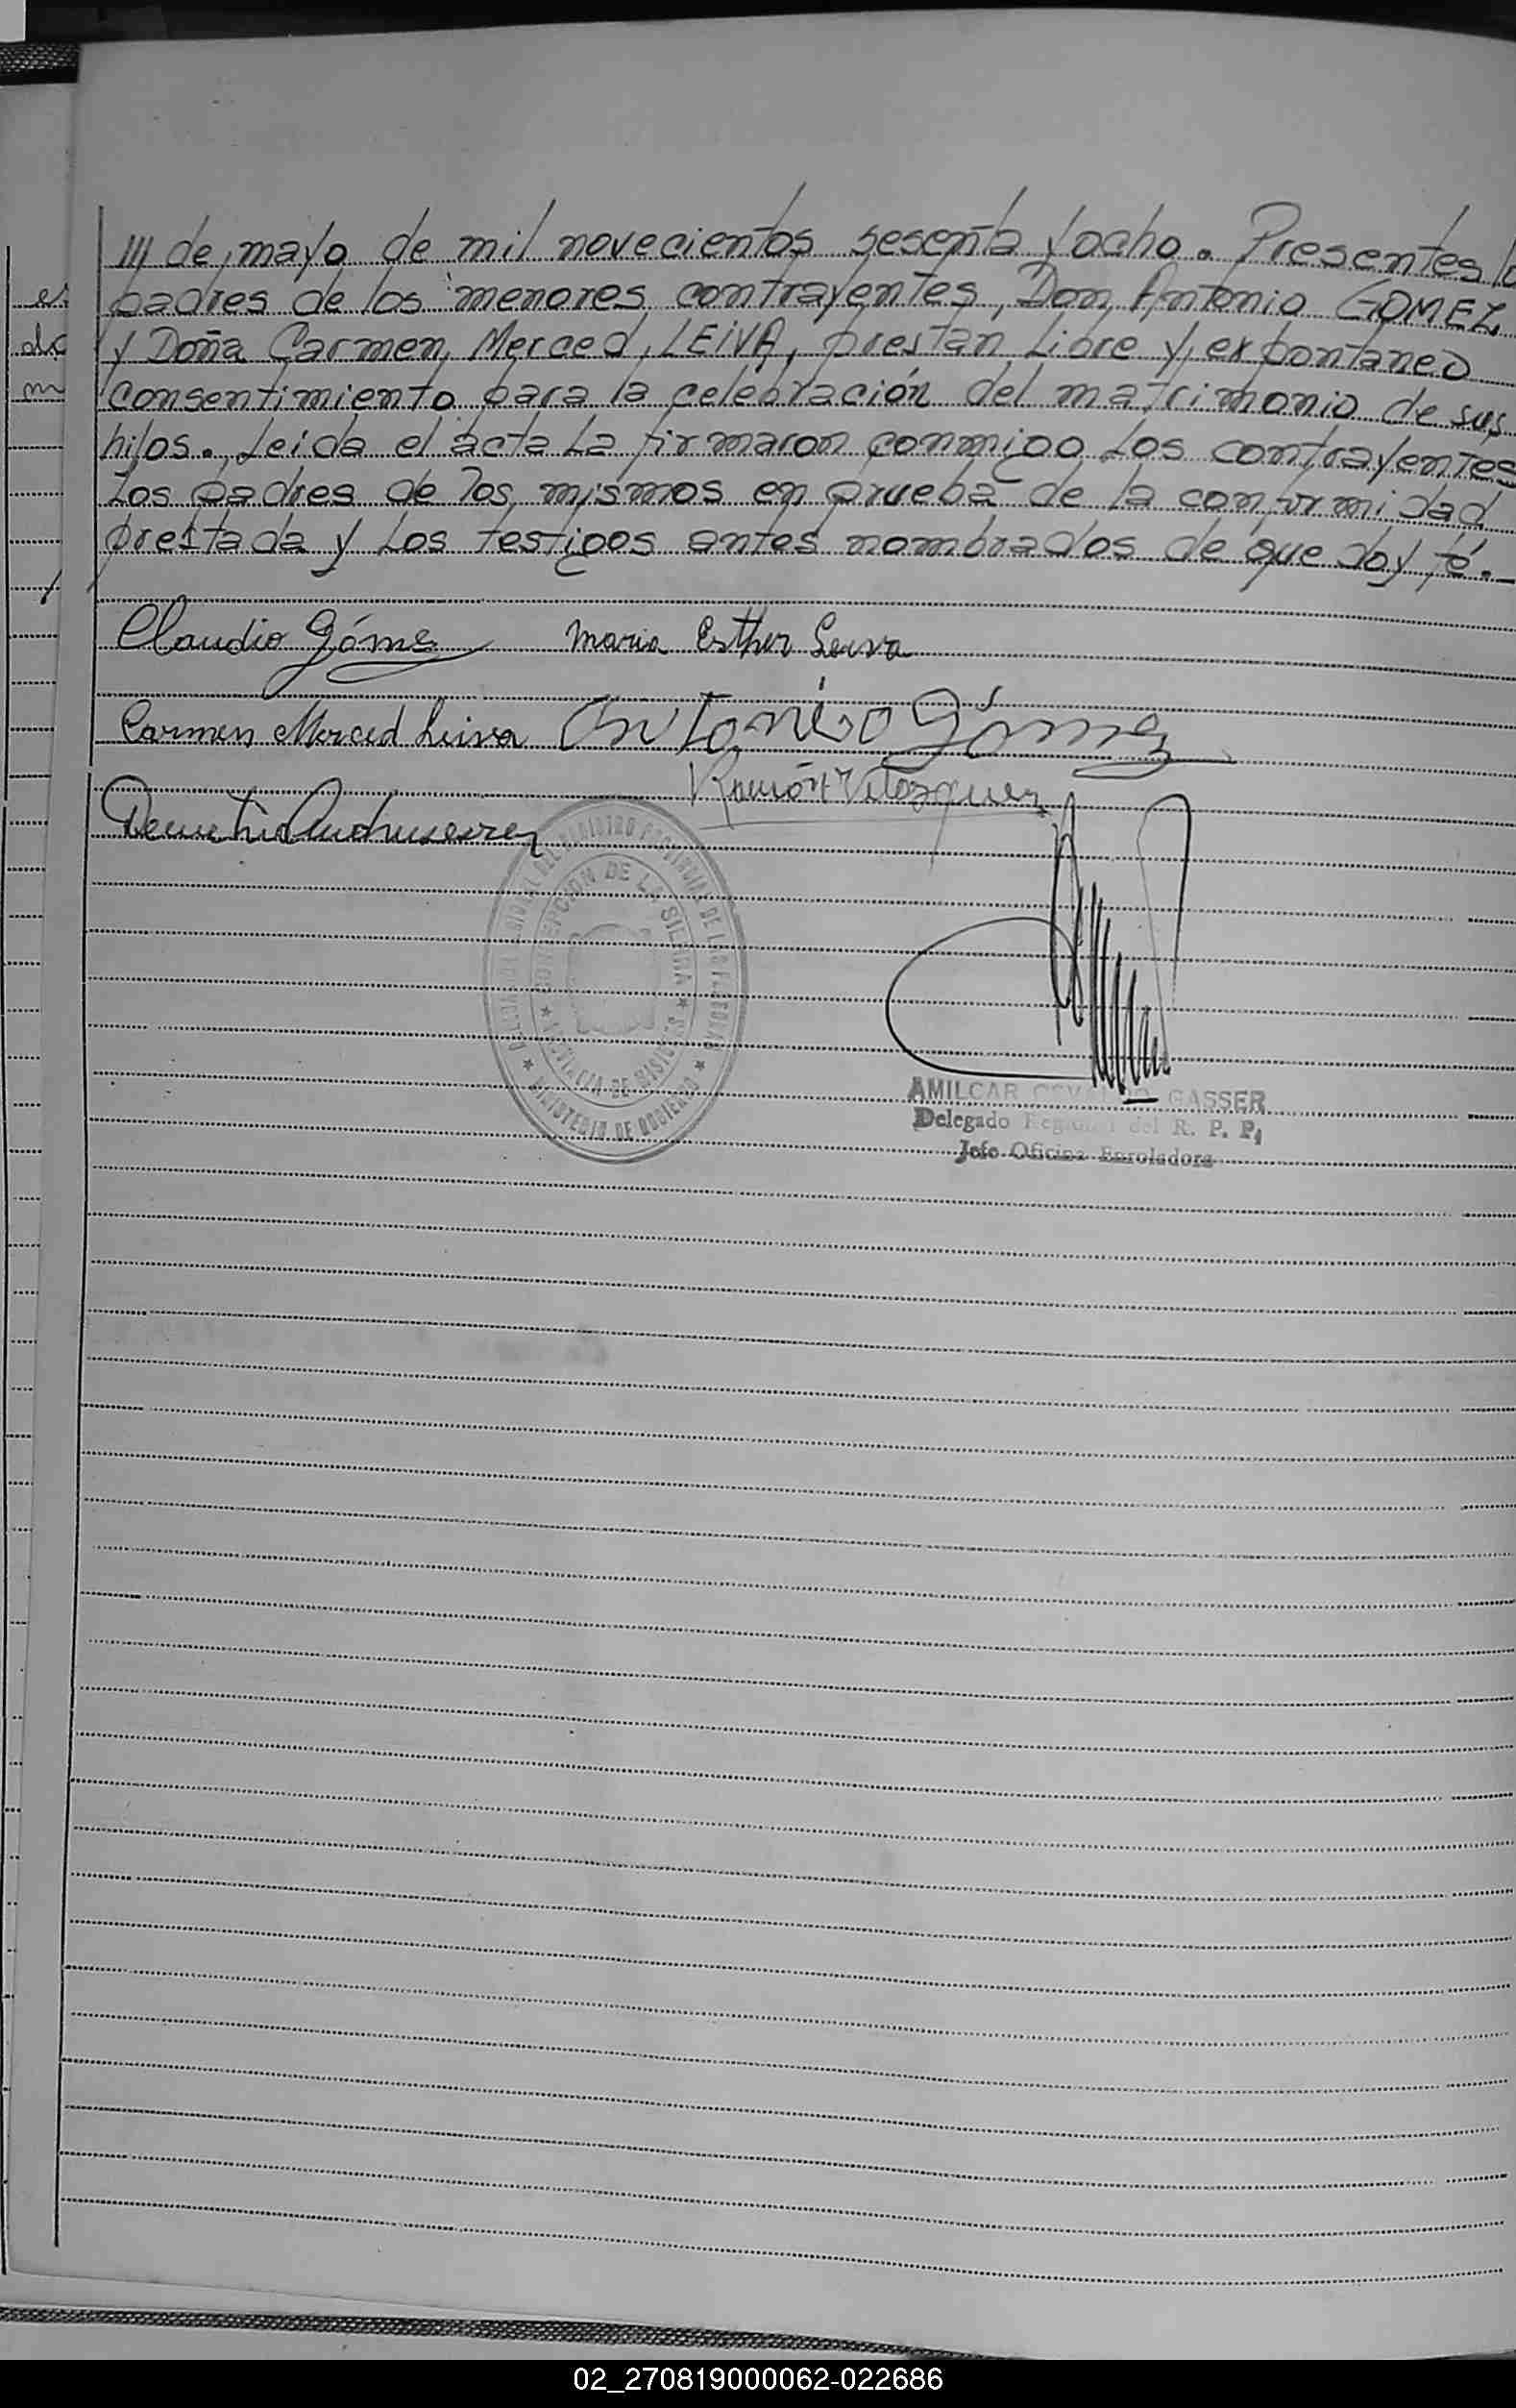 /// de mayo de mil novecientos sesenta y ocho. Presentes lo
padres de los menores contrayentes, Don Antonio GOMEZ
y Doña Carmen Merced LEIVA, prestan Libre y expontaneo
consentimiento para la celebración del matrimonio de sus
hijos. Leida el acta La firmaron conmigo Los contrayentes
Los padres de los mismos en prueba de la conformidad
prestada y Los testigos antes nombrados de que doy fé.
Claudio Gómez Maria Esther Leiva
Carmen Merced Leiva Antonio Gómez
Ramón Velazquez
DELEGACION REGIONAL DEL REGISTRO PROVINCIAL DE LAS PERSONAS
CONCEPCION DE LA SIERRA
PROVINCIA DE MISIONES
MINISTERIO DE GOBIERNO
AMILCAR OSVALDO GASSER
Delegado Regional del R. P. P.
Jefe Oficina Enroladora
02_270819000062-022686